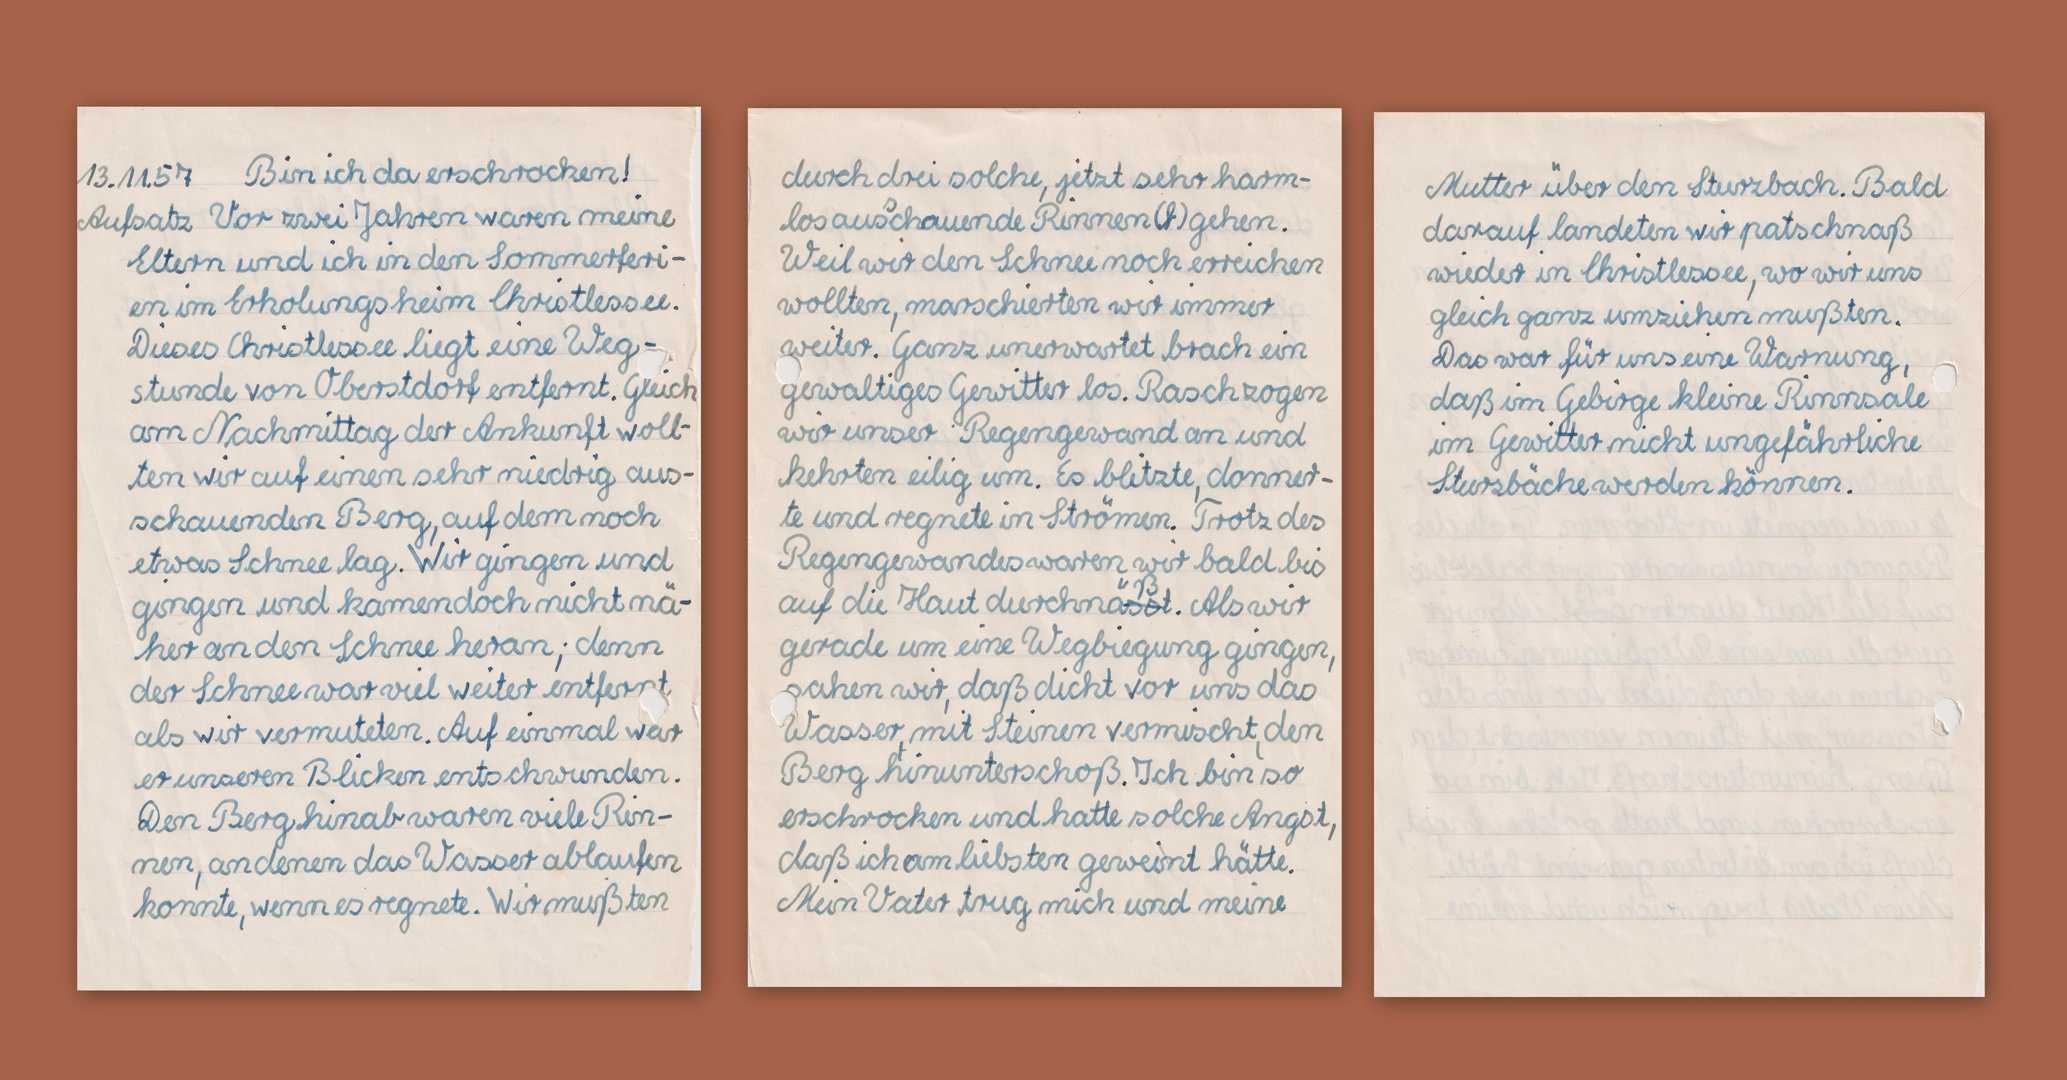 13.11.57 Bin ich da erschrocken!
Aufsatz Vor zwei Jahren waren meine
Eltern und ich in den Sommerferi-
en im Erholungsheim Christlessee.
Dieses Christlessee liegt eine Weg-
stunde von Oberstdorf entfernt. Gleich
am Nachmittag der Ankunft woll-
ten wir auf einen sehr niedrig aus-
schauenden Berg, auf dem noch
etwas Schnee lag. Wir gingen und
gingen und kamen doch nicht nä-
her an den Schnee heran; denn
der Schnee war viel weiter entfernt
als wir vermuteten. Auf einmal war
er unseren Blicken entschwunden.
Den Berg hinab waren viele Rin-
nen, an denen das Wasser ablaufen
konnte, wenn es regnete. Wir mußten
durch drei solche, jetzt sehr harm-
los ausschauende Rinnen gehen.
Weil wir den Schnee noch erreichen
wollten, marschierten wir immer
weiter. Ganz unerwartet brach ein
gewaltiges Gewitter los. Rasch zogen
wir unser Regengewand an und
kehrten eilig um. Es blitzte, donner-
te und regnete in Strömen. Trotz des
Regengewandes waren wir bald bis
auf die Haut durchnäßt. Als wir
gerade um eine Wegbiegung gingen,
sahen wir, daß dicht vor uns das
Wasser, mit Steinen vermischt, den
Berg hinunterschoß. Ich bin so
erschrocken und hatte solche Angst,
daß ich am liebsten geweint hätte.
Mein Vater trug mich und meine
Mutter über den Sturzbach. Bald
darauf landeten wir patschnaß
wieder in Christlessee, wo wir uns
gleich ganz umziehen mußten.
Das war für uns eine Warnung,
daß im Gebirge kleine Rinnsale
im Gewitter nicht ungefährliche
Sturzbäche werden können.